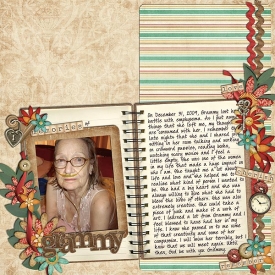 memories of
Grammy
love
On December 31, 2009, Grammy lost her
battle with emphysema. As I put away
things that she left me, my thoughts
are consumed with her. I remember our
late nights that she and I shared
sitting in her room talking and working
on crossword puzzles, reading books,
watching scary movies and I feel a
little empty. She was one of the women
in my life that made a huge impact on
who I am. She taught me a lot about
life and love and she helped me to
realize what kind of person I wanted to
be. She had a big heart and she was
always willing to give what she had to
bless the lives of others. She was also
extremely creative. She could take a
piece of junk and make it a work of
art. I learned a lot from Grammy and I
feel blessed to have had her in my
life. I know she passed on to me some
of that creativity and some of her
compassion. I will miss her terribly, but I
know that we will meet again. Until
then, God be with you Grammy.